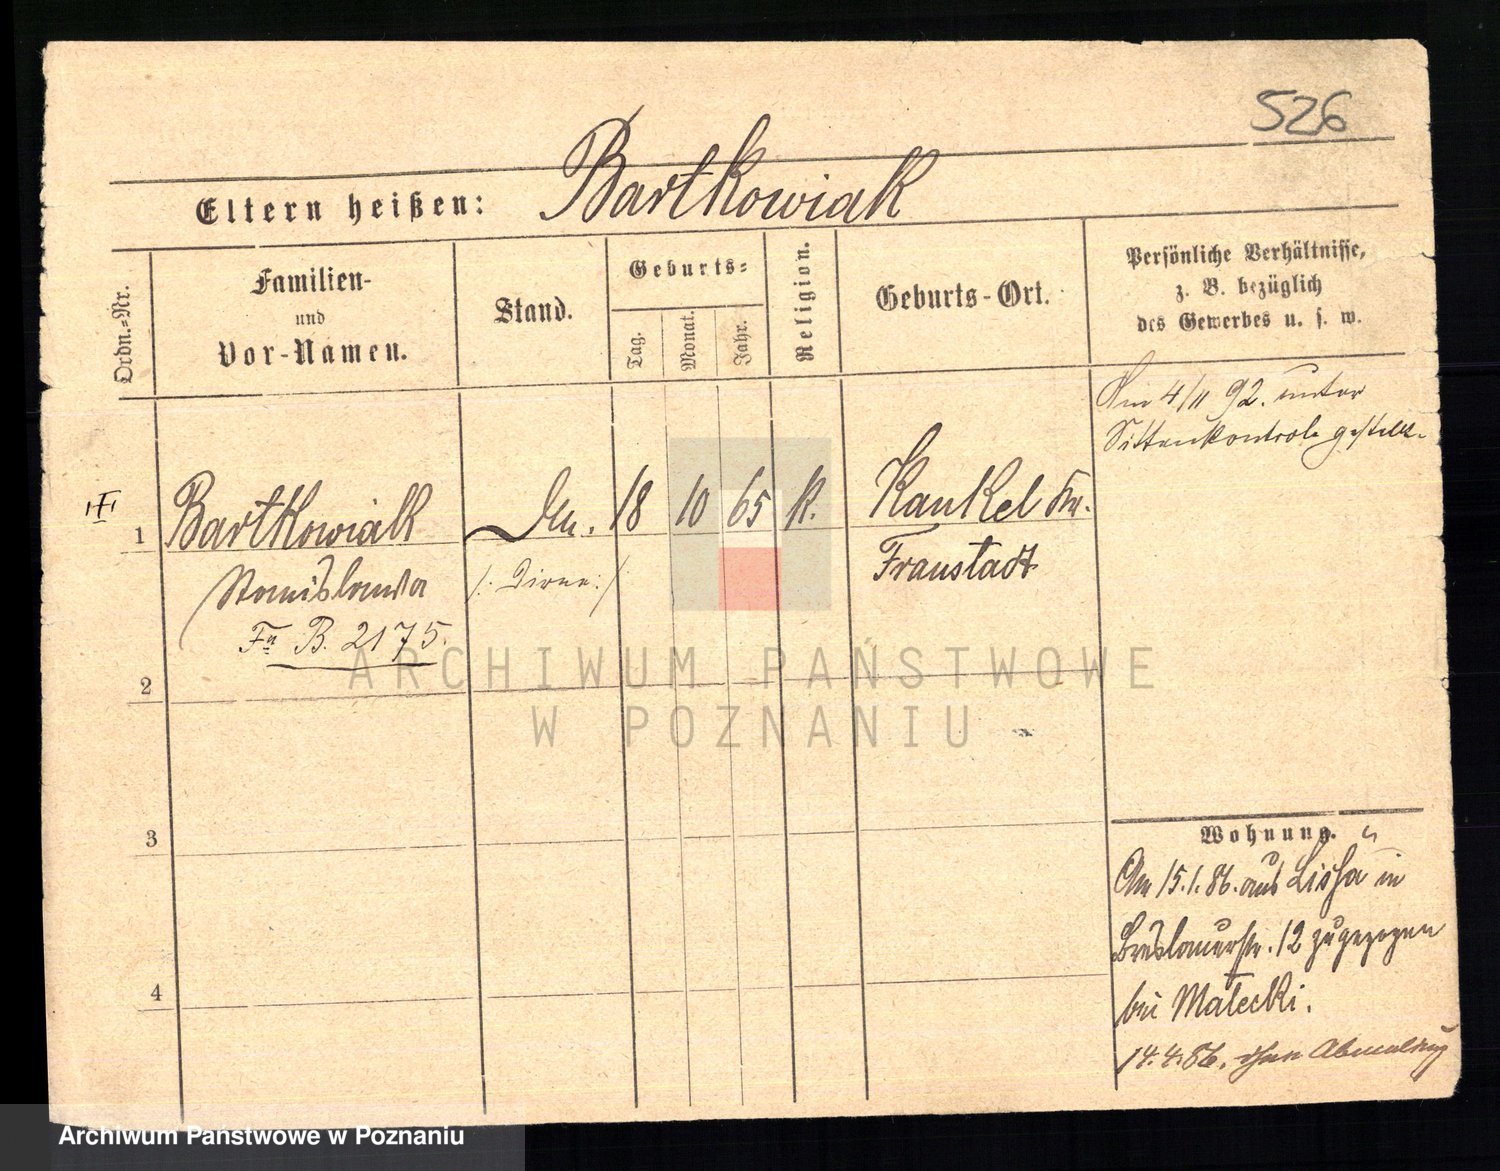 526
Eltern heißen: Bartkowiak
Ordn.-Nr.
Familien-
und
Vor-Namen.
Stand.
Geburts-
Tag.
Monat.
Jahr.
Religion.
Geburts-Ort.
Persönliche Verhältnisse,
z. B. bezüglich
des Gewerbes u. s. w.
Am 4/11 92. unter
Sittenkontrole gestellt.
1 Bartkowiak 18 10 65 k. Kankel Kr.
Stanislawa /: Dirne :/ Fraustadt
Fa B. 2175.
2
3
4
Wohnung.
Am 15.1.86. aus Lissa in
Breslauerstr. 12 zugezogen
bei Malecki.
14.4.86. ohne Abmeldung
ARCHIWUM PAŃSTWOWE
W POZNANIU
Archiwum Państwowe w Poznaniu